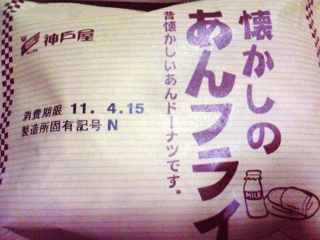 神戸屋
懐かしの
あんフライ
昔懐かしいあんドーナツです。
消費期限 11. 4.15
製造所固有記号 N
MILK